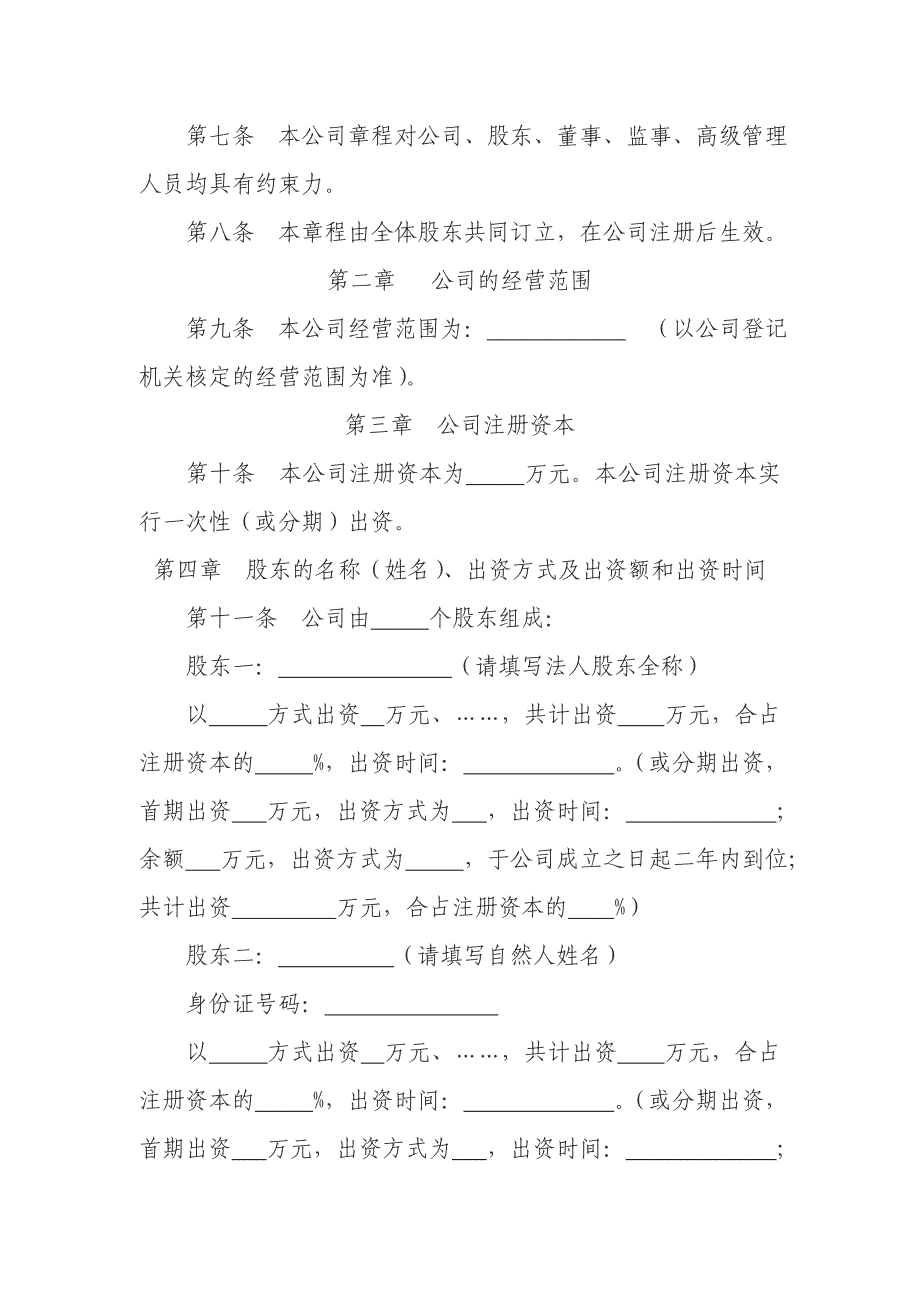 第七条　本公司章程对公司、股东、董事、监事、高级管理
人员均具有约束力。
第八条　本章程由全体股东共同订立，在公司注册后生效。
第二章　 公司的经营范围
第九条　本公司经营范围为：____________　（以公司登记
机关核定的经营范围为准）。
第三章　公司注册资本
第十条　本公司注册资本为_____万元。本公司注册资本实
行一次性（或分期）出资。
第四章　股东的名称（姓名）、出资方式及出资额和出资时间
第十一条　公司由_____个股东组成：
股东一：_______________（请填写法人股东全称）
以_____方式出资__万元、……，共计出资____万元，合占
注册资本的_____%，出资时间：_____________。（或分期出资，
首期出资___万元，出资方式为___，出资时间：_____________；
余额___万元，出资方式为_____，于公司成立之日起二年内到位；
共计出资_________万元，合占注册资本的____%）
股东二：__________（请填写自然人姓名）
身份证号码：_______________
以_____方式出资__万元、……，共计出资____万元，合占
注册资本的_____%，出资时间：_____________。（或分期出资，
首期出资___万元，出资方式为___，出资时间：_____________；